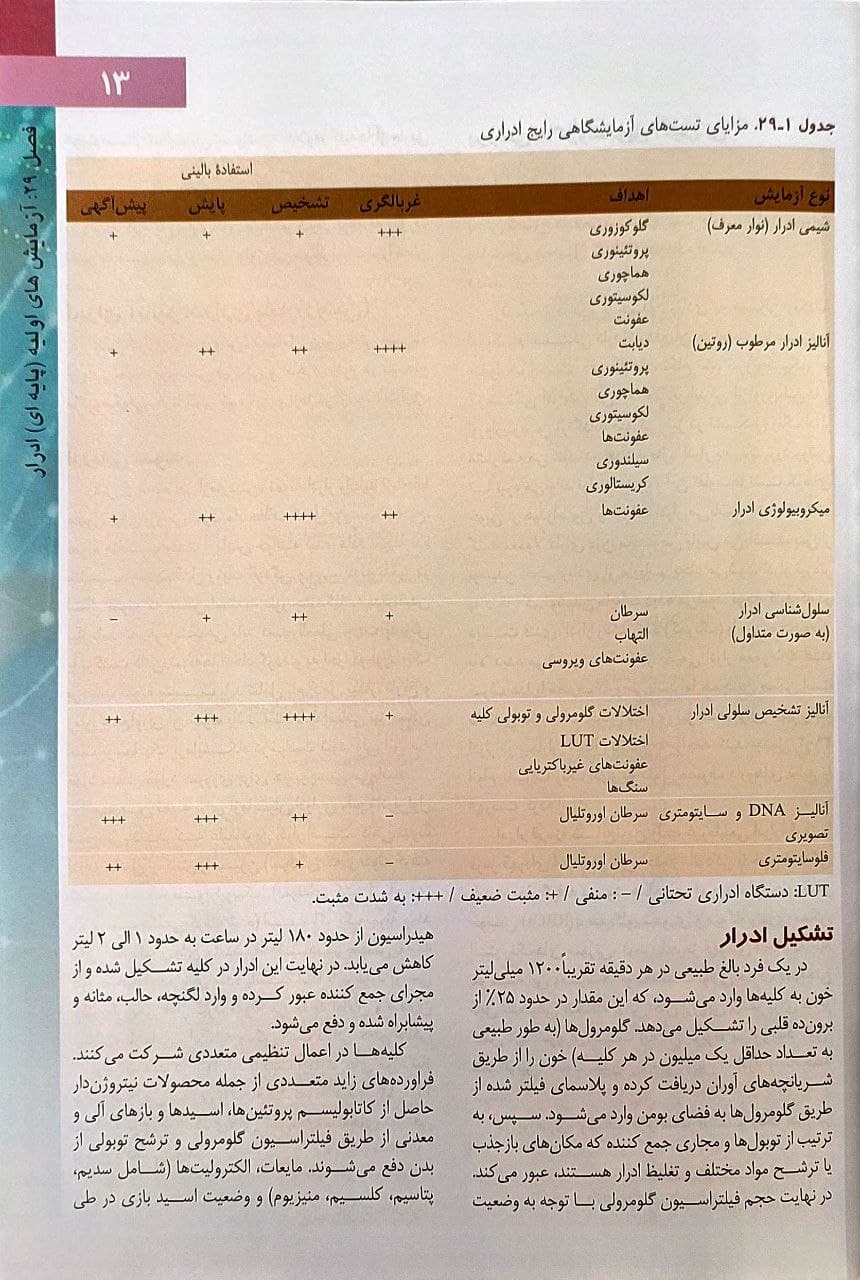 ۱۳
فصل ۲۹: آزمایش های اولیه (پایه ای) ادرار
جدول ۱-۲۹. مزایای تست‌های آزمایشگاهی رایج ادراری
استفادهٔ بالینی
نوع آزمایش اهداف غربالگری تشخیص پایش پیش‌آگهی
شیمی ادرار (نوار معرف) گلوکوزوری +++ + + +
پروتئینوری
هماچوری
لکوسیتوری
عفونت
آنالیز ادرار مرطوب (روتین) دیابت ++++ ++ ++ +
پروتئینوری
هماچوری
لکوسیتوری
عفونت‌ها
سیلندوری
کریستالوری
میکروبیولوژی ادرار عفونت‌ها ++ ++++ ++ +
سلول‌شناسی ادرار سرطان + ++ + –
(به صورت متداول) التهاب
عفونت‌های ویروسی
آنالیز تشخیص سلولی ادرار اختلالات گلومرولی و توبولی کلیه + ++++ +++ ++
اختلالات LUT
عفونت‌های غیرباکتریایی
سنگ‌ها
آنالیـز DNA و سـایتومتری سرطان اوروتلیال – ++ +++ +++
تصویری
فلوسایتومتری سرطان اوروتلیال – + +++ ++
LUT: دستگاه ادراری تحتانی / – : منفی / +: مثبت ضعیف / +++: به شدت مثبت.
تشکیل ادرار
در یک فرد بالغ طبیعی در هر دقیقه تقریباً ۱۲۰۰ میلی‌لیتر
خون به کلیه‌ها وارد می‌شـود، که این مقدار در حدود ۲۵٪ از
برون‌ده قلبی را تشـکیل می‌دهد. گلومرول‌ها (به طور طبیعی
به تعـداد حداقل یک میلیون در هر کلیـه) خون را از طریق
شـریانچه‌های آوران دریافت کرده و پلاسـمای فیلتر شده از
طریق گلومرول‌ها به فضای بومن وارد می‌شـود. سـپس، به
ترتیب از توبول‌ها و مجاری جمع کننده که مکان‌های بازجذب
یا ترشـح مواد مختلف و تغلیظ ادرار هسـتند، عبور می‌کند.
در نهایت حجم فیلتراسـیون گلومرولی بـا توجه به وضعیت
هیدراسیون از حدود ۱۸۰ لیتر در ساعت به حدود ۱ الی ۲ لیتر
کاهش می‌یابد. در نهایت این ادرار در کلیه تشـکیل شده و از
مجرای جمع کننده عبور کـرده و وارد لگنچه، حالب، مثانه و
پیشابراه شده و دفع می‌شود.
کلیه‌هـا در اعمال تنظیمی متعددی شـرکت می‌کنند.
فرآورده‌های زاید متعـددی از جمله محصولات نیتروژن‌دار
حاصل از کاتابولیسـم پروتئین‌ها، اسـیدها و بازهای آلی و
معدنی از طریق فیلتراسـیون گلومرولی و ترشح توبولی از
بدن دفع می‌شـوند. مایعات، الکترولیت‌ها (شـامل سدیم،
پتاسیم، کلسیم، منیزیوم) و وضعیت اسـید بازی در طی